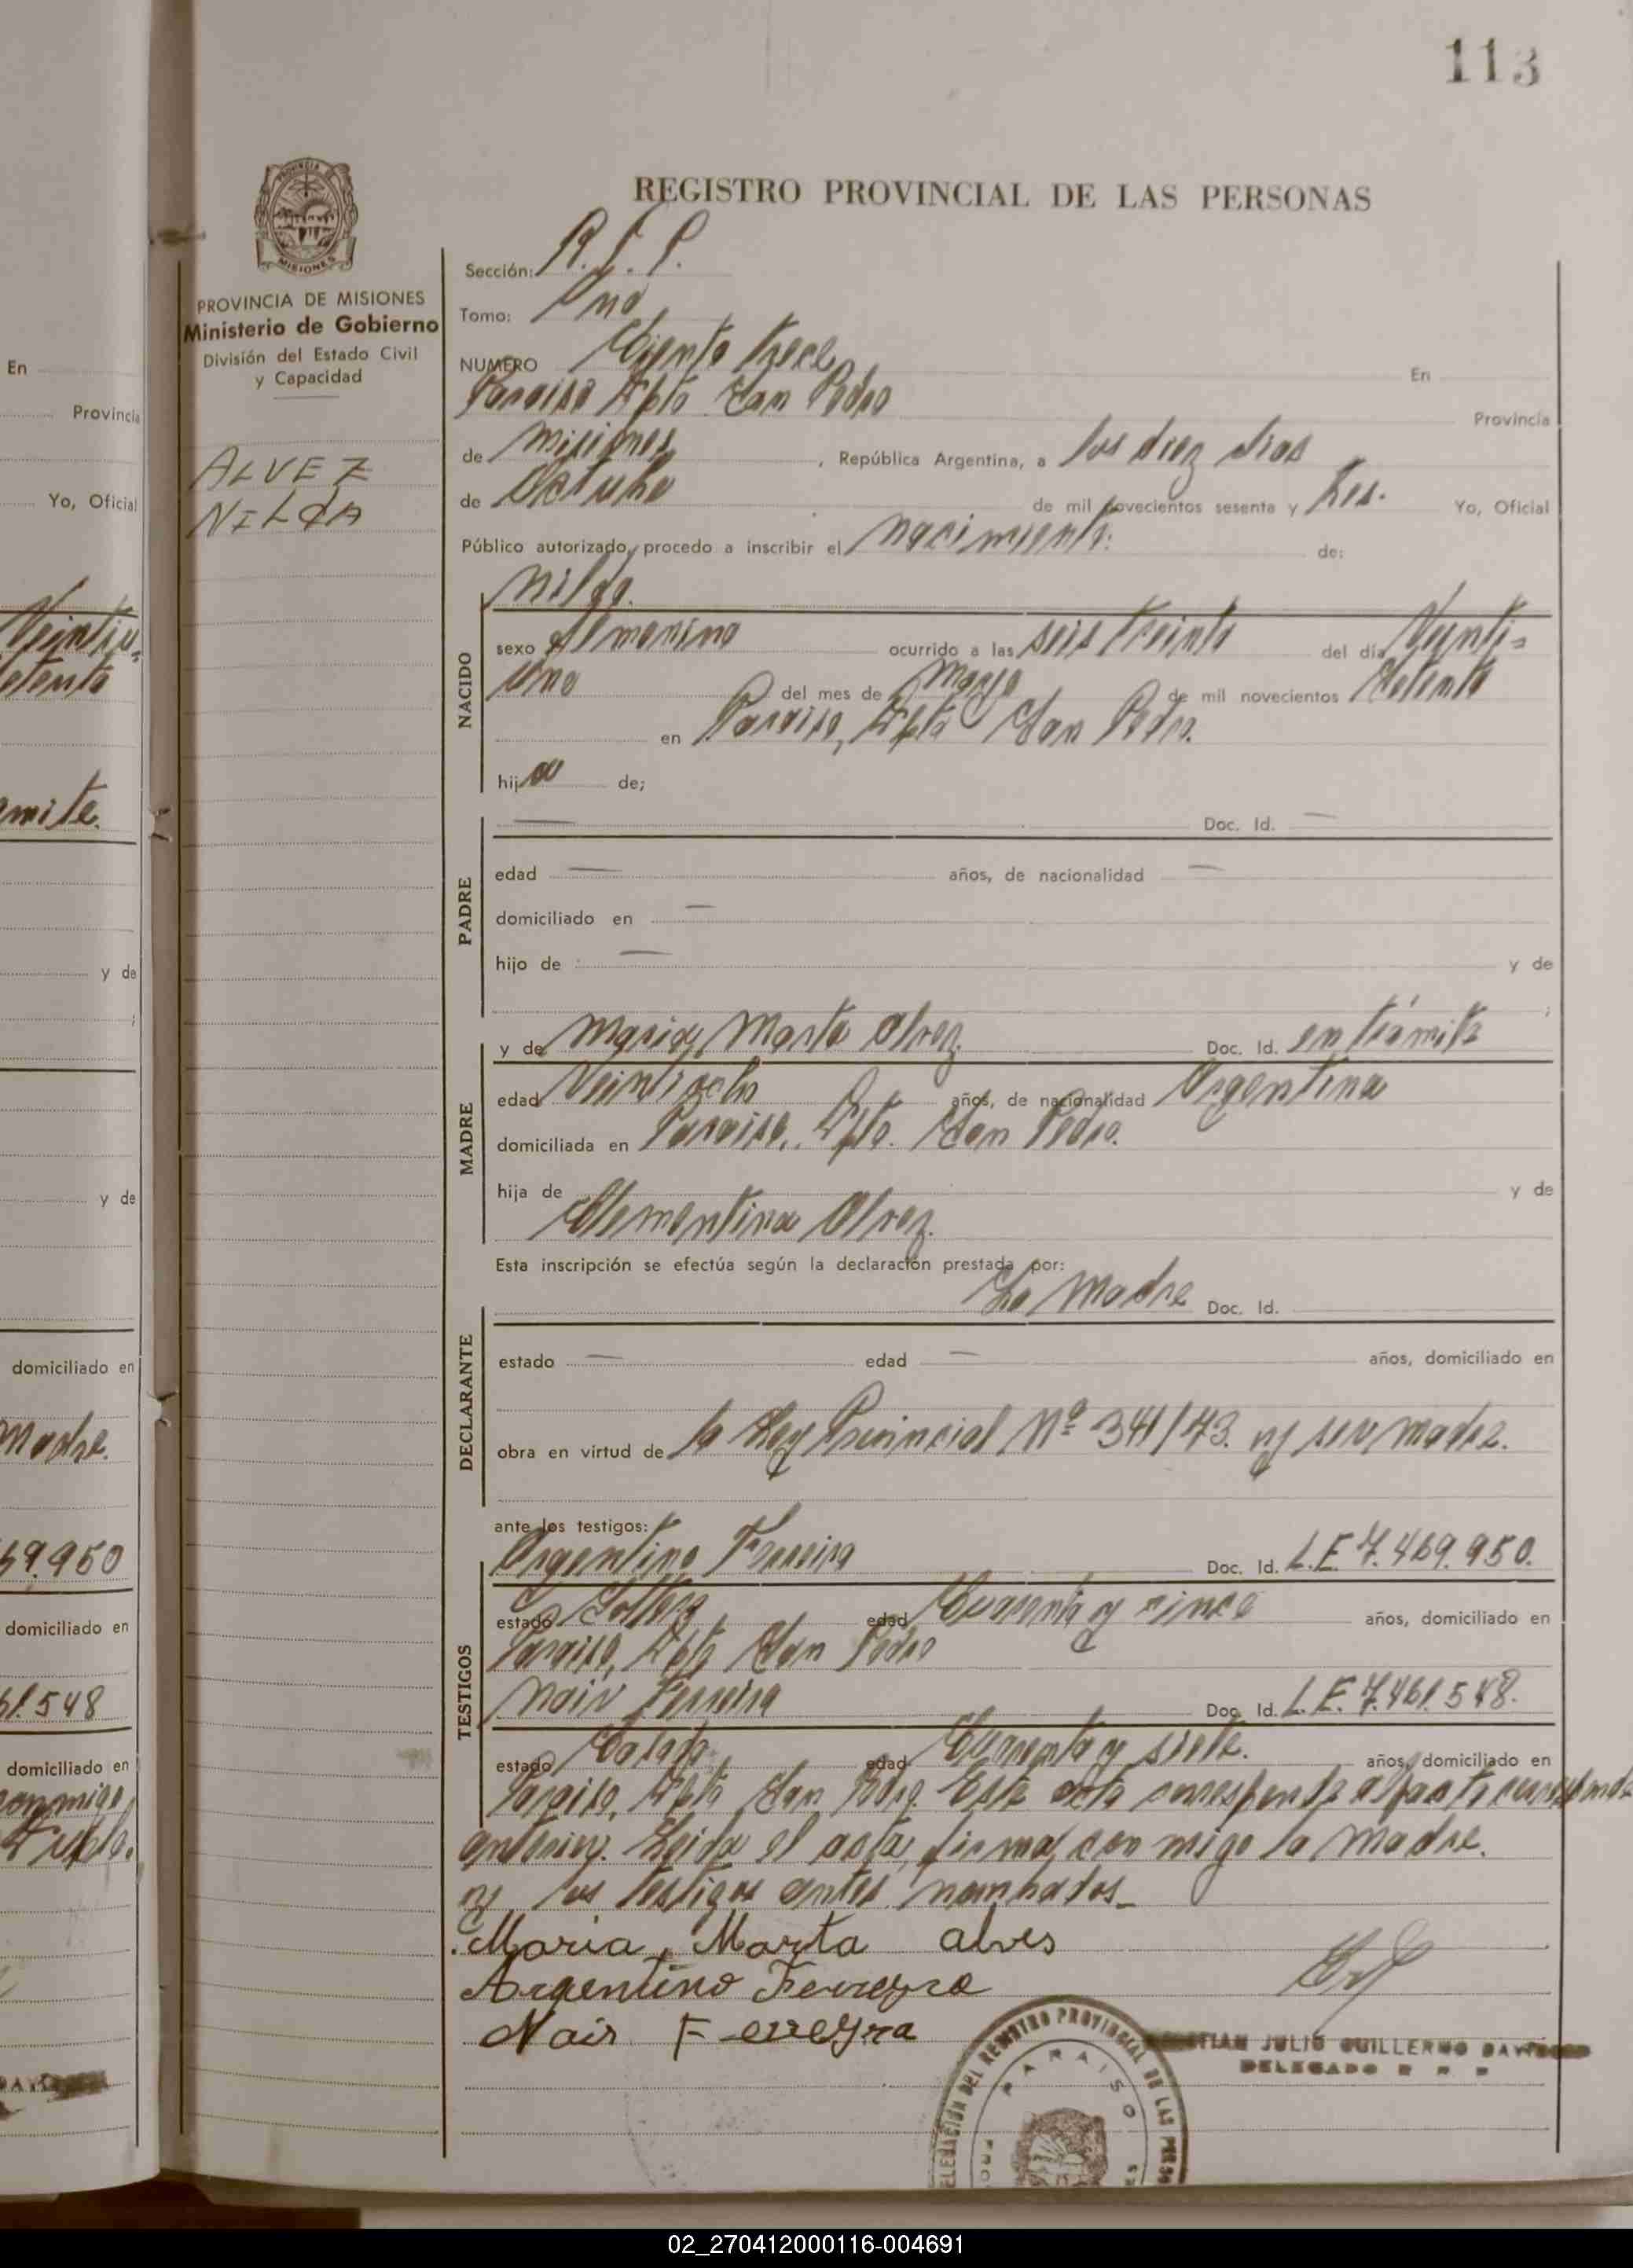 113
REGISTRO PROVINCIAL DE LAS PERSONAS
PROVINCIA DE MISIONES
Ministerio de Gobierno
División del Estado Civil
y Capacidad
ALVEZ
NILDA
Sección: R. P. P.
Tomo: Uno
NUMERO Ciento trece En
Paraiso Dpto San Pedro Provincia
de Misiones, República Argentina, a los diez dias
de Octubre de mil novecientos sesenta y tres. Yo, Oficial
Público autorizado, procedo a inscribir el nacimiento: de:
Nilda.
NACIDO
sexo femenino ocurrido a las seis treinta del día Veinti-
uno del mes de Mayo de mil novecientos setenta
en Paraiso, Dpto San Pedro.
hija de;
PADRE
— Doc. Id. —
edad — años, de nacionalidad —
domiciliado en —
hijo de — y de
;
MADRE
y de Maria, Marta Alvez. Doc. Id. en trámite
edad Veintiocho años, de nacionalidad Argentina
domiciliada en Paraiso, Dpto. San Pedro.
hija de y de
Clementina Alvez.
Esta inscripción se efectúa según la declaración prestada por:
DECLARANTE
La Madre Doc. Id.
estado — edad — años, domiciliado en
obra en virtud de la Ley Provincial Nº 341/73. y ser madre.
ante los testigos:
TESTIGOS
Argentino Ferreira Doc. Id. L.E 7.469.950.
estado Soltero edad Cuarenta y cinco años, domiciliado en
Paraiso, Dpto San Pedro
Nair Ferreira Doc. Id. L.E. 7.461.548.
estado Casado edad Cuarenta y siete. años, domiciliado en
Paraiso, Dpto San Pedro. Este acta corresponde al
anterior. Leida el acta, firma con migo la Madre.
y los testigos antes nombrados_
Maria, Marta alves
Argentino Ferreyra
Nair Ferreyra
JULIO GUILLERMO
DELEGADO R P P
DELEGACIÓN DEL REGISTRO PROVINCIAL DE LAS PERSO
PARAISO
En
Provincia
Yo, Oficial
y de
;
y de
domiciliado en
Madre.
domiciliado en
domiciliado en
02_270412000116-004691